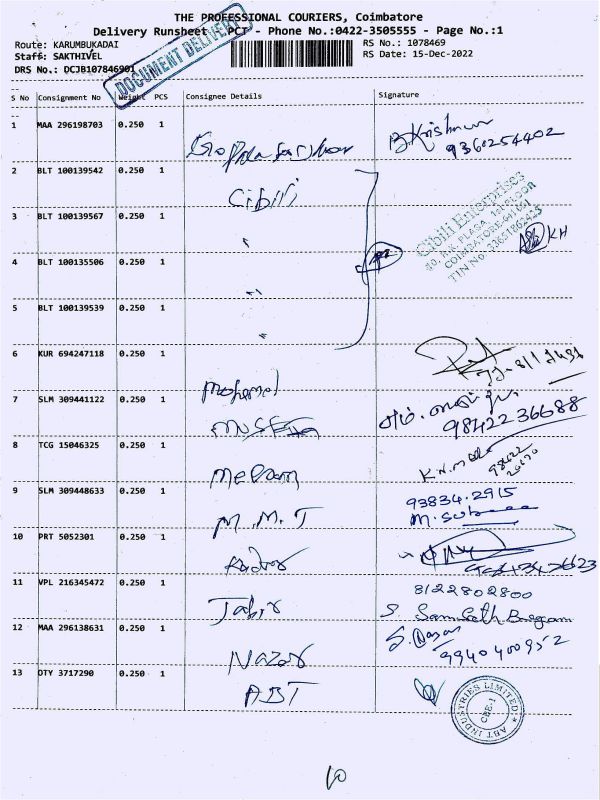 THE PROFESSIONAL COURIERS, Coimbatore
Delivery Runsheet - PCT - Phone No.:0422-3505555 - Page No.:1
Route: KARUMBUKADAI
RS No.: 1078469
Staff: SAKTHIVEL
RS Date: 15-Dec-2022
DRS No.: DCJB107846901
DOCUMENT DELIVERY
S No Consignment No Weight PCS Consignee Details Signature
1 MAA 296198703 0.250 1
B Krishnan
9360254402
2 BLT 100139542 0.250 1 Cibili
3 BLT 100139567 0.250 1 "
Cibili Enterprises
COIMBATORE-641001
KH
4 BLT 100135506 0.250 1 "
5 BLT 100139539 0.250 1 "
6 KUR 694247118 0.250 1 Mohamed
7 SLM 309441122 0.250 1
98422 36688
8 TCG 15046325 0.250 1
9 SLM 309448633 0.250 1 M.M.T
93834.2915
10 PRT 5052301 0.250 1 Kadar
11 VPL 216345472 0.250 1 Jabir
8122802800
12 MAA 296138631 0.250 1 Nazar
9940400952
13 OTY 3717290 0.250 1 ABT
ABT INDUSTRIES LIMITED
CBE-1
10